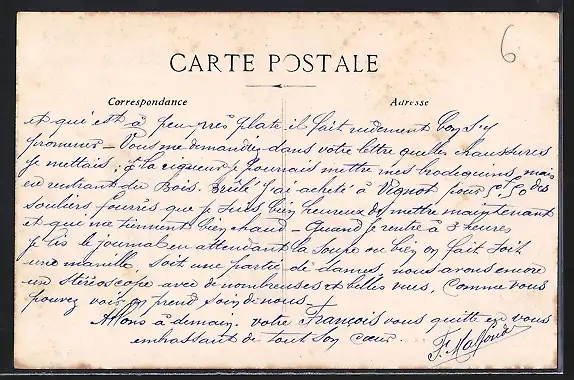 6
CARTE POSTALE
Correspondance
Adresse
et qui est à peu près plate, il fait rudement bon s'y
promener — Vous me demandez dans votre lettre quelles chaussures
je mettais ; à la rigueur je pourrais mettre mes brodequins, mais
en rentrant du Bois-Brûlé j'ai acheté à Vignot pour des
souliers fourrés que je suis bien heureux de mettre maintenant
et qui me tiennent bien chaud — Quand je rentre à 3 heures
je lis le journal en attendant la soupe ou bien on fait soit
une manille, soit une partie de dames, nous avons encore
un Stéréoscope avec de nombreuses et belles vues. Comme vous
pouvez voir on prend soin de nous —
Allons à demain. Votre François vous quitte en vous
embrassant de tout son cœur.